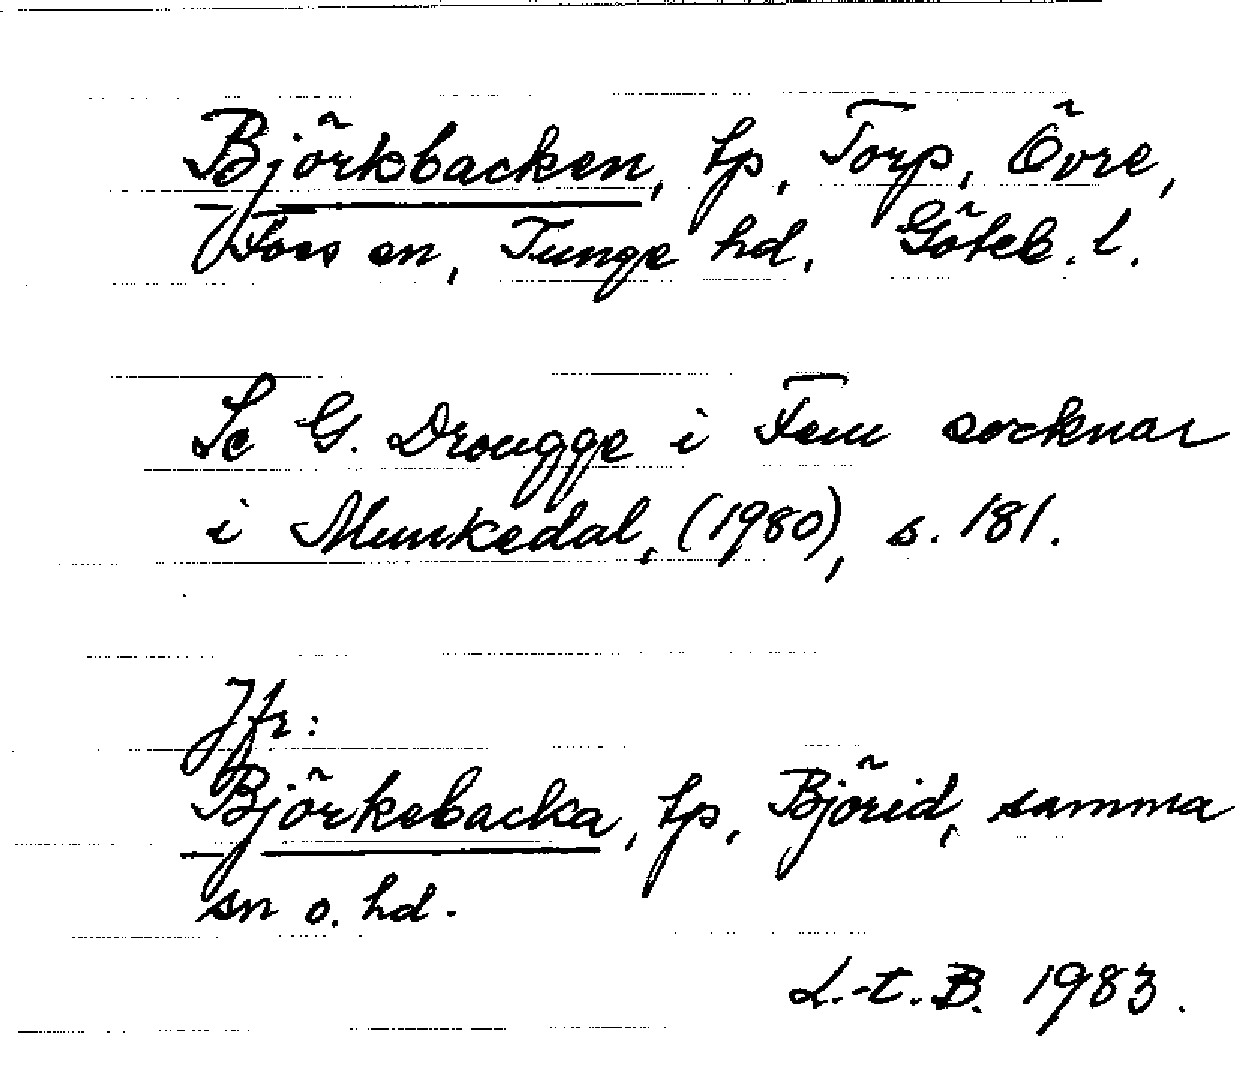 Björkbacken, tp, Torp, Övre,
Foss sn, Tunge hd, Göteb. l.
Se G. Drougge i Fem socknar
i Munkedal, (1980), s. 181.
Jfr:
Björkebacka, tp, Björid, samma
sn o. hd.
L.-t. B. 1983.